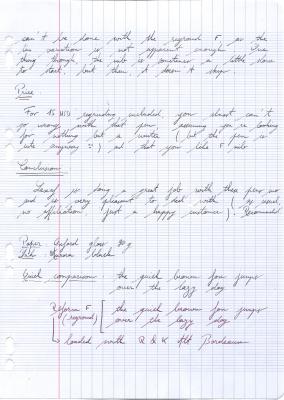 can't be done with the reground F as the
line variation is not apparent enough. One
thing though, the nib is sometimes a little slow
to start, but then it doesn't stop.
Price
For 45 USD regrinding included, you almost can't
go wrong with that pen, assuming you're looking
for nothing but a writer (but the pen is
cute anyway :) and that you like F nibs
Conclusion
is doing a great job with these pens
and is very pleasant to deal with (as usual,
no affiliation, just a happy customer). Recommended.
Paper: Oxford glossy 90 g
Ink: Aurora black
Quick comparison: the quick brown fox jumps
over the lazy dog
Reform F
(reground)
the quick brown fox jumps
over the lazy dog
loaded with R & K Alt Bordeaux